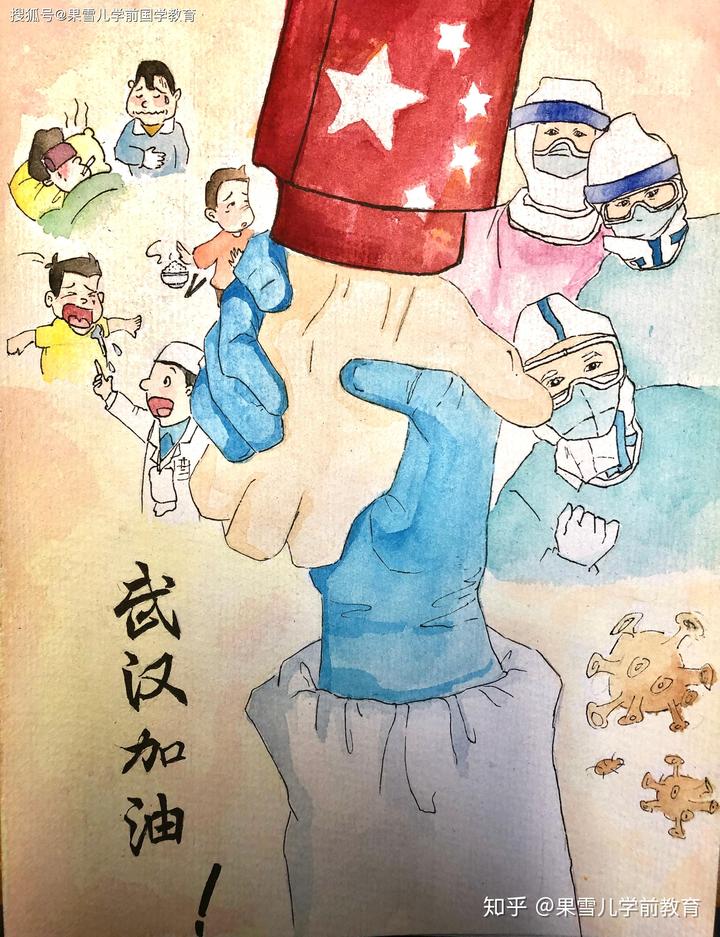 搜狐号@果雪儿学前国学教育
武汉加油!
知乎 @果雪儿学前教育